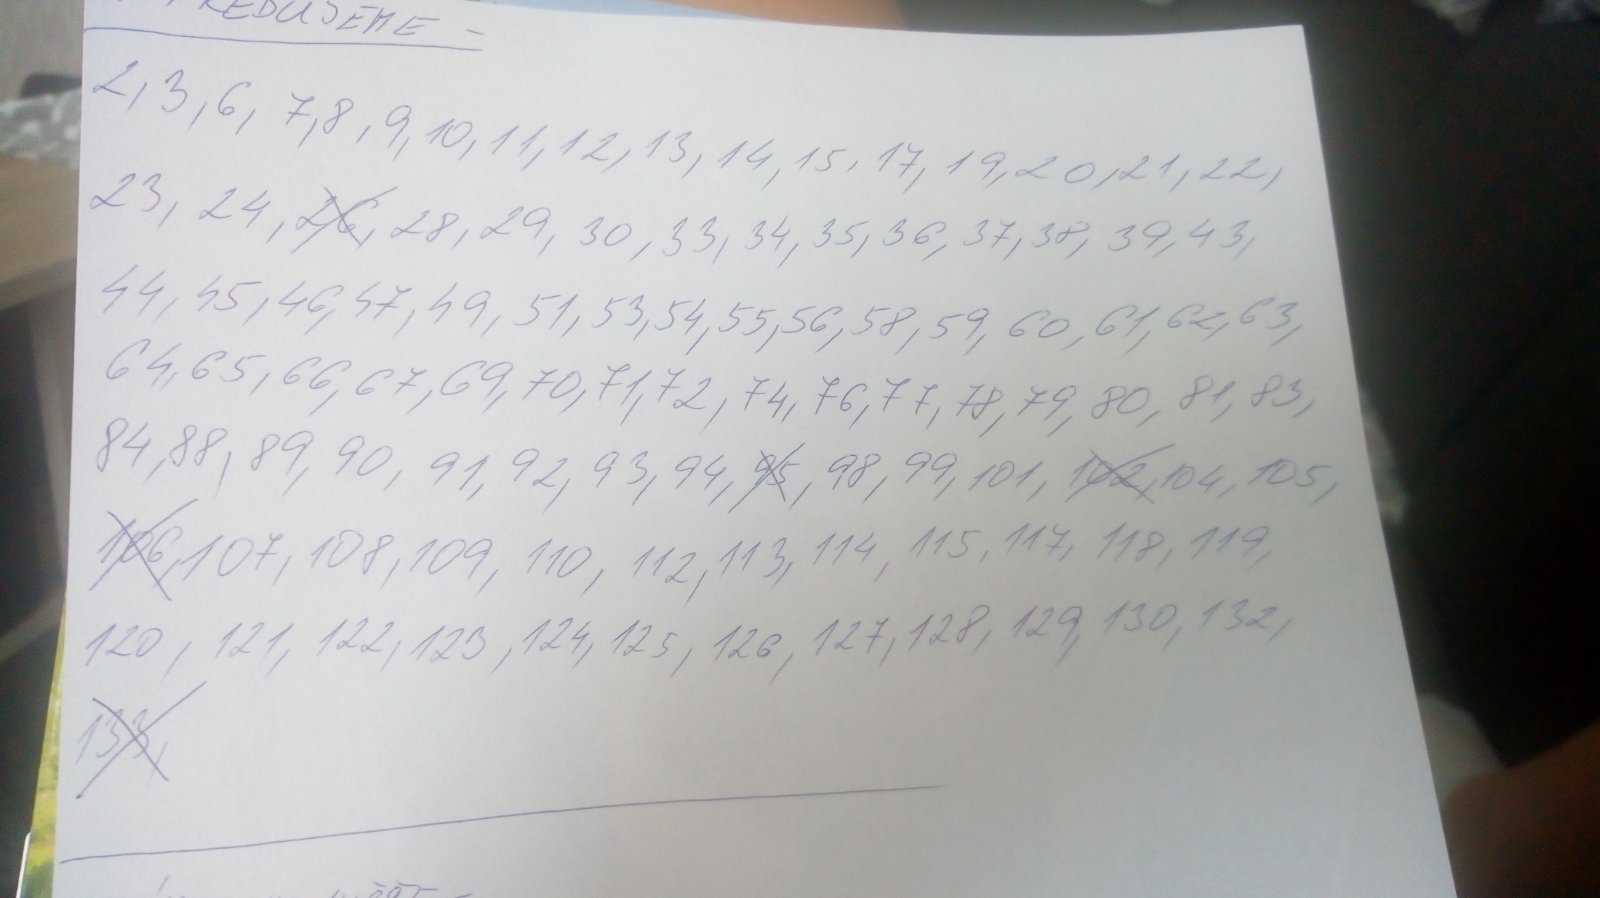 2, 3, 6, 7, 8, 9, 10, 11, 12, 13, 14, 15, 17, 19, 20, 21, 22,
23, 24, 26, 28, 29, 30, 33, 34, 35, 36, 37, 38, 39, 43,
44, 45, 46, 47, 49, 51, 53, 54, 55, 56, 58, 59, 60, 61, 62, 63,
64, 65, 66, 67, 69, 70, 71, 72, 74, 76, 77, 78, 79, 80, 81, 83,
84, 88, 89, 90, 91, 92, 93, 94, 95, 98, 99, 101, 102, 104, 105,
106, 107, 108, 109, 110, 112, 113, 114, 115, 117, 118, 119,
120, 121, 122, 123, 124, 125, 126, 127, 128, 129, 130, 132,
133,